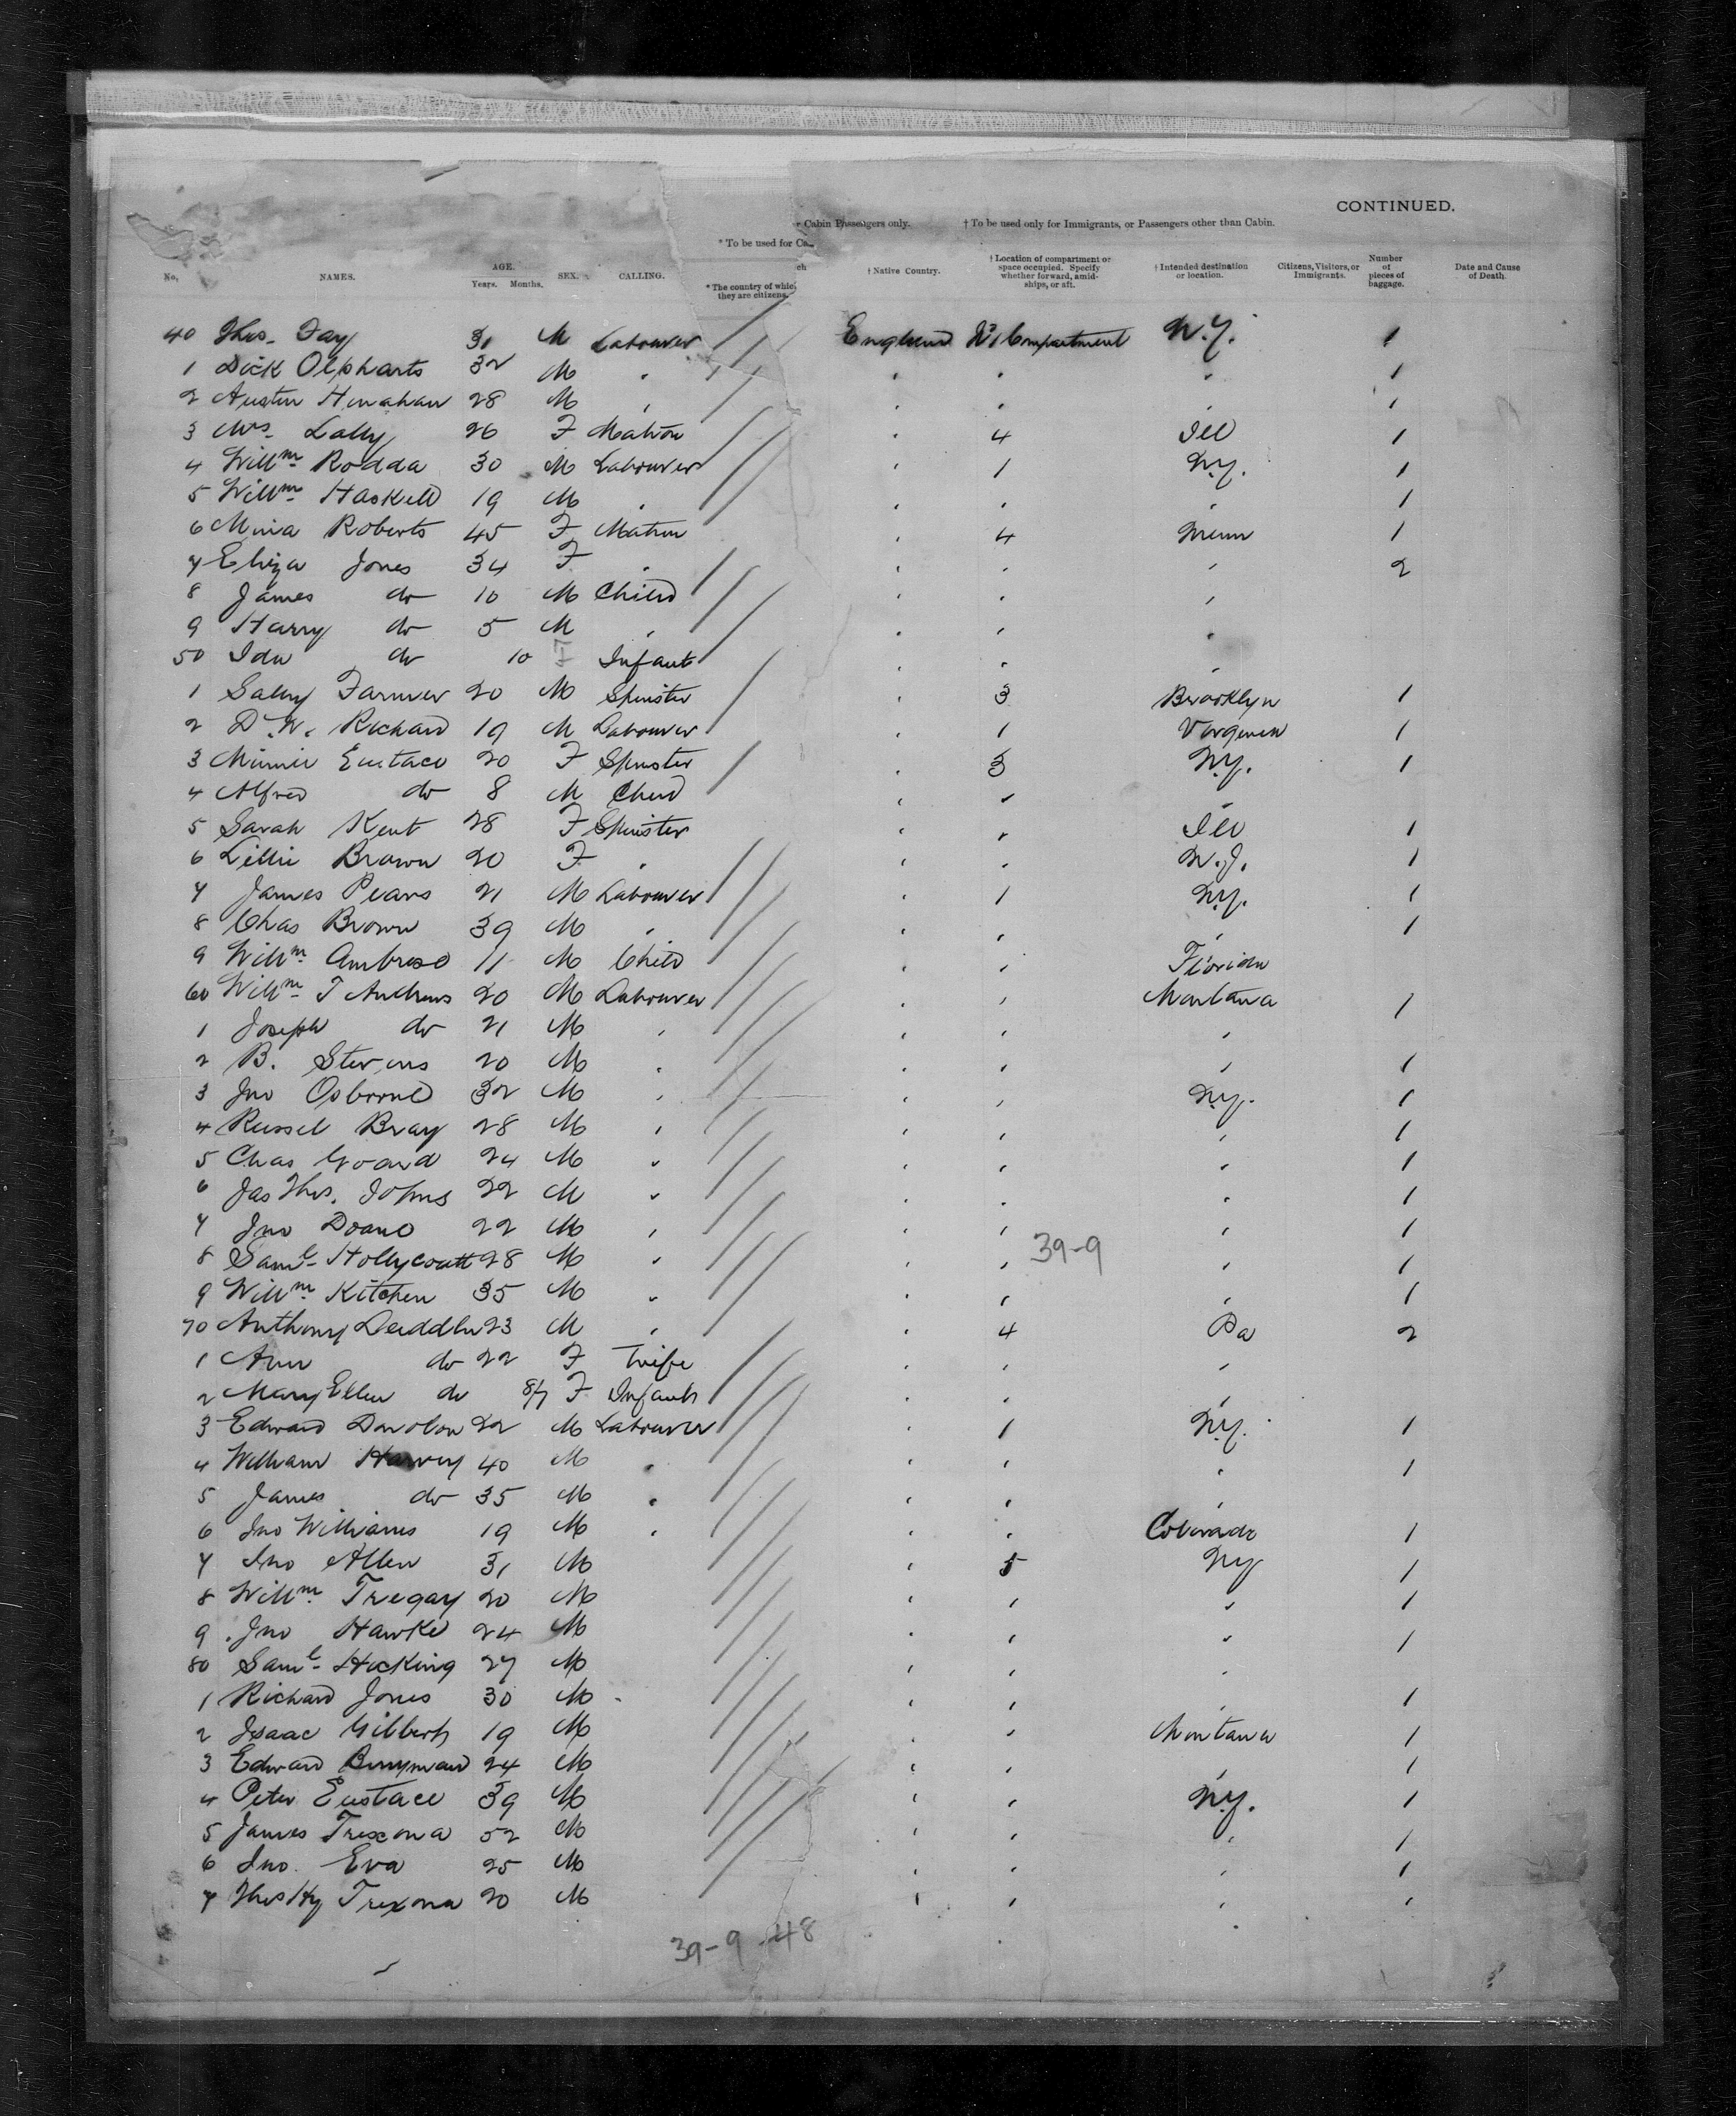 CONTINUED.
r Cabin Passengers only. † To be used only for Immigrants, or Passengers other than Cabin.
* To be used for Ca
No. NAMES. AGE. Years. Months. SEX. CALLING. * The country of whic they are citizens. ch † Native Country. † Location of compartment or space occupied. Specify whether forward, amid-ships, or aft. † Intended destination or location. Citizens, Visitors, or Immigrants. Number of pieces of baggage. Date and Cause of Death.
40 Thos. Fay 31 M Labourer England No 1 Compartment N.Y. 1
1 Dick Olpharts 32 M " " " " 1
2 Austin Hinahan 28 M " " " " 1
3 Mrs. Lally 26 F Matron " 4 Ill 1
4 Willm Rodda 30 M Labourer " 1 N.Y. 1
5 Willm Haskell 19 M " " " " 1
6 Mina Roberts 45 F Matron " 4 Minn 1
7 Eliza Jones 34 F " " " " 2
8 James do 10 M Child " " "
9 Harry do 5 M " " " "
50 Ida do 10 F Infant " " "
1 Sally Farmer 20 M Spinster " 3 Brooklyn 1
2 D. W. Richard 19 M Labourer " 1 1
3 Minnie Eustace 20 F Spinster " 3 N.Y. 1
4 Alfred do 8 M Child " " "
5 Sarah Kent 28 F Spinster " " Ill 1
6 Lillie Brown 20 F " " " N.J. 1
7 James Pears 21 M Labourer " 1 N.Y. 1
8 Chas Brown 39 M " " " " 1
9 Willm Ambrose 11 M Child " " Florida
60 Willm T Andrews 20 M Labourer " " Montana 1
1 Joseph do 21 M " " " "
2 B. Stevens 20 M " " " " 1
3 Jno Osborne 32 M " " " N.Y. 1
4 Russel Bray 28 M " " " " 1
5 Chas Goard 24 M " " " " 1
6 Jas Thos. Johns 22 M " " " " 1
7 Jno Doane 22 M " " " " 1
39-9
8 Saml Hollycoatt 28 M " " " " 1
9 Willm Kitchen 35 M " " " " 1
70 Anthony 23 M " " 4 Pa 2
1 Ann do 22 F Wife " " "
2 Mary Ellen do F Infant " " "
3 Edward 22 M Labourer " 1 N.Y. 1
4 William Harvey 40 M " " " " 1
5 James do 35 M " " " "
6 Jno Williams 19 M " " " Colorado 1
7 Jno Allen 31 M " 5 NY 1
8 Willm Tregay 20 M " " " 1
9 Jno Hawke 24 M " " " 1
80 Saml Hocking 27 M " " "
1 Richard Jones 30 M " " " 1
2 Isaac Gilbert 19 M " " Montana 1
3 Edward Berryman 24 M " " " 1
4 Peter Eustace 39 M " " N.Y. 1
5 James Trexona 52 M " " " 1
6 Jno. Eva 25 M " " " 1
7 Thos Hy Trexona 20 M " " " 1
39-9-48